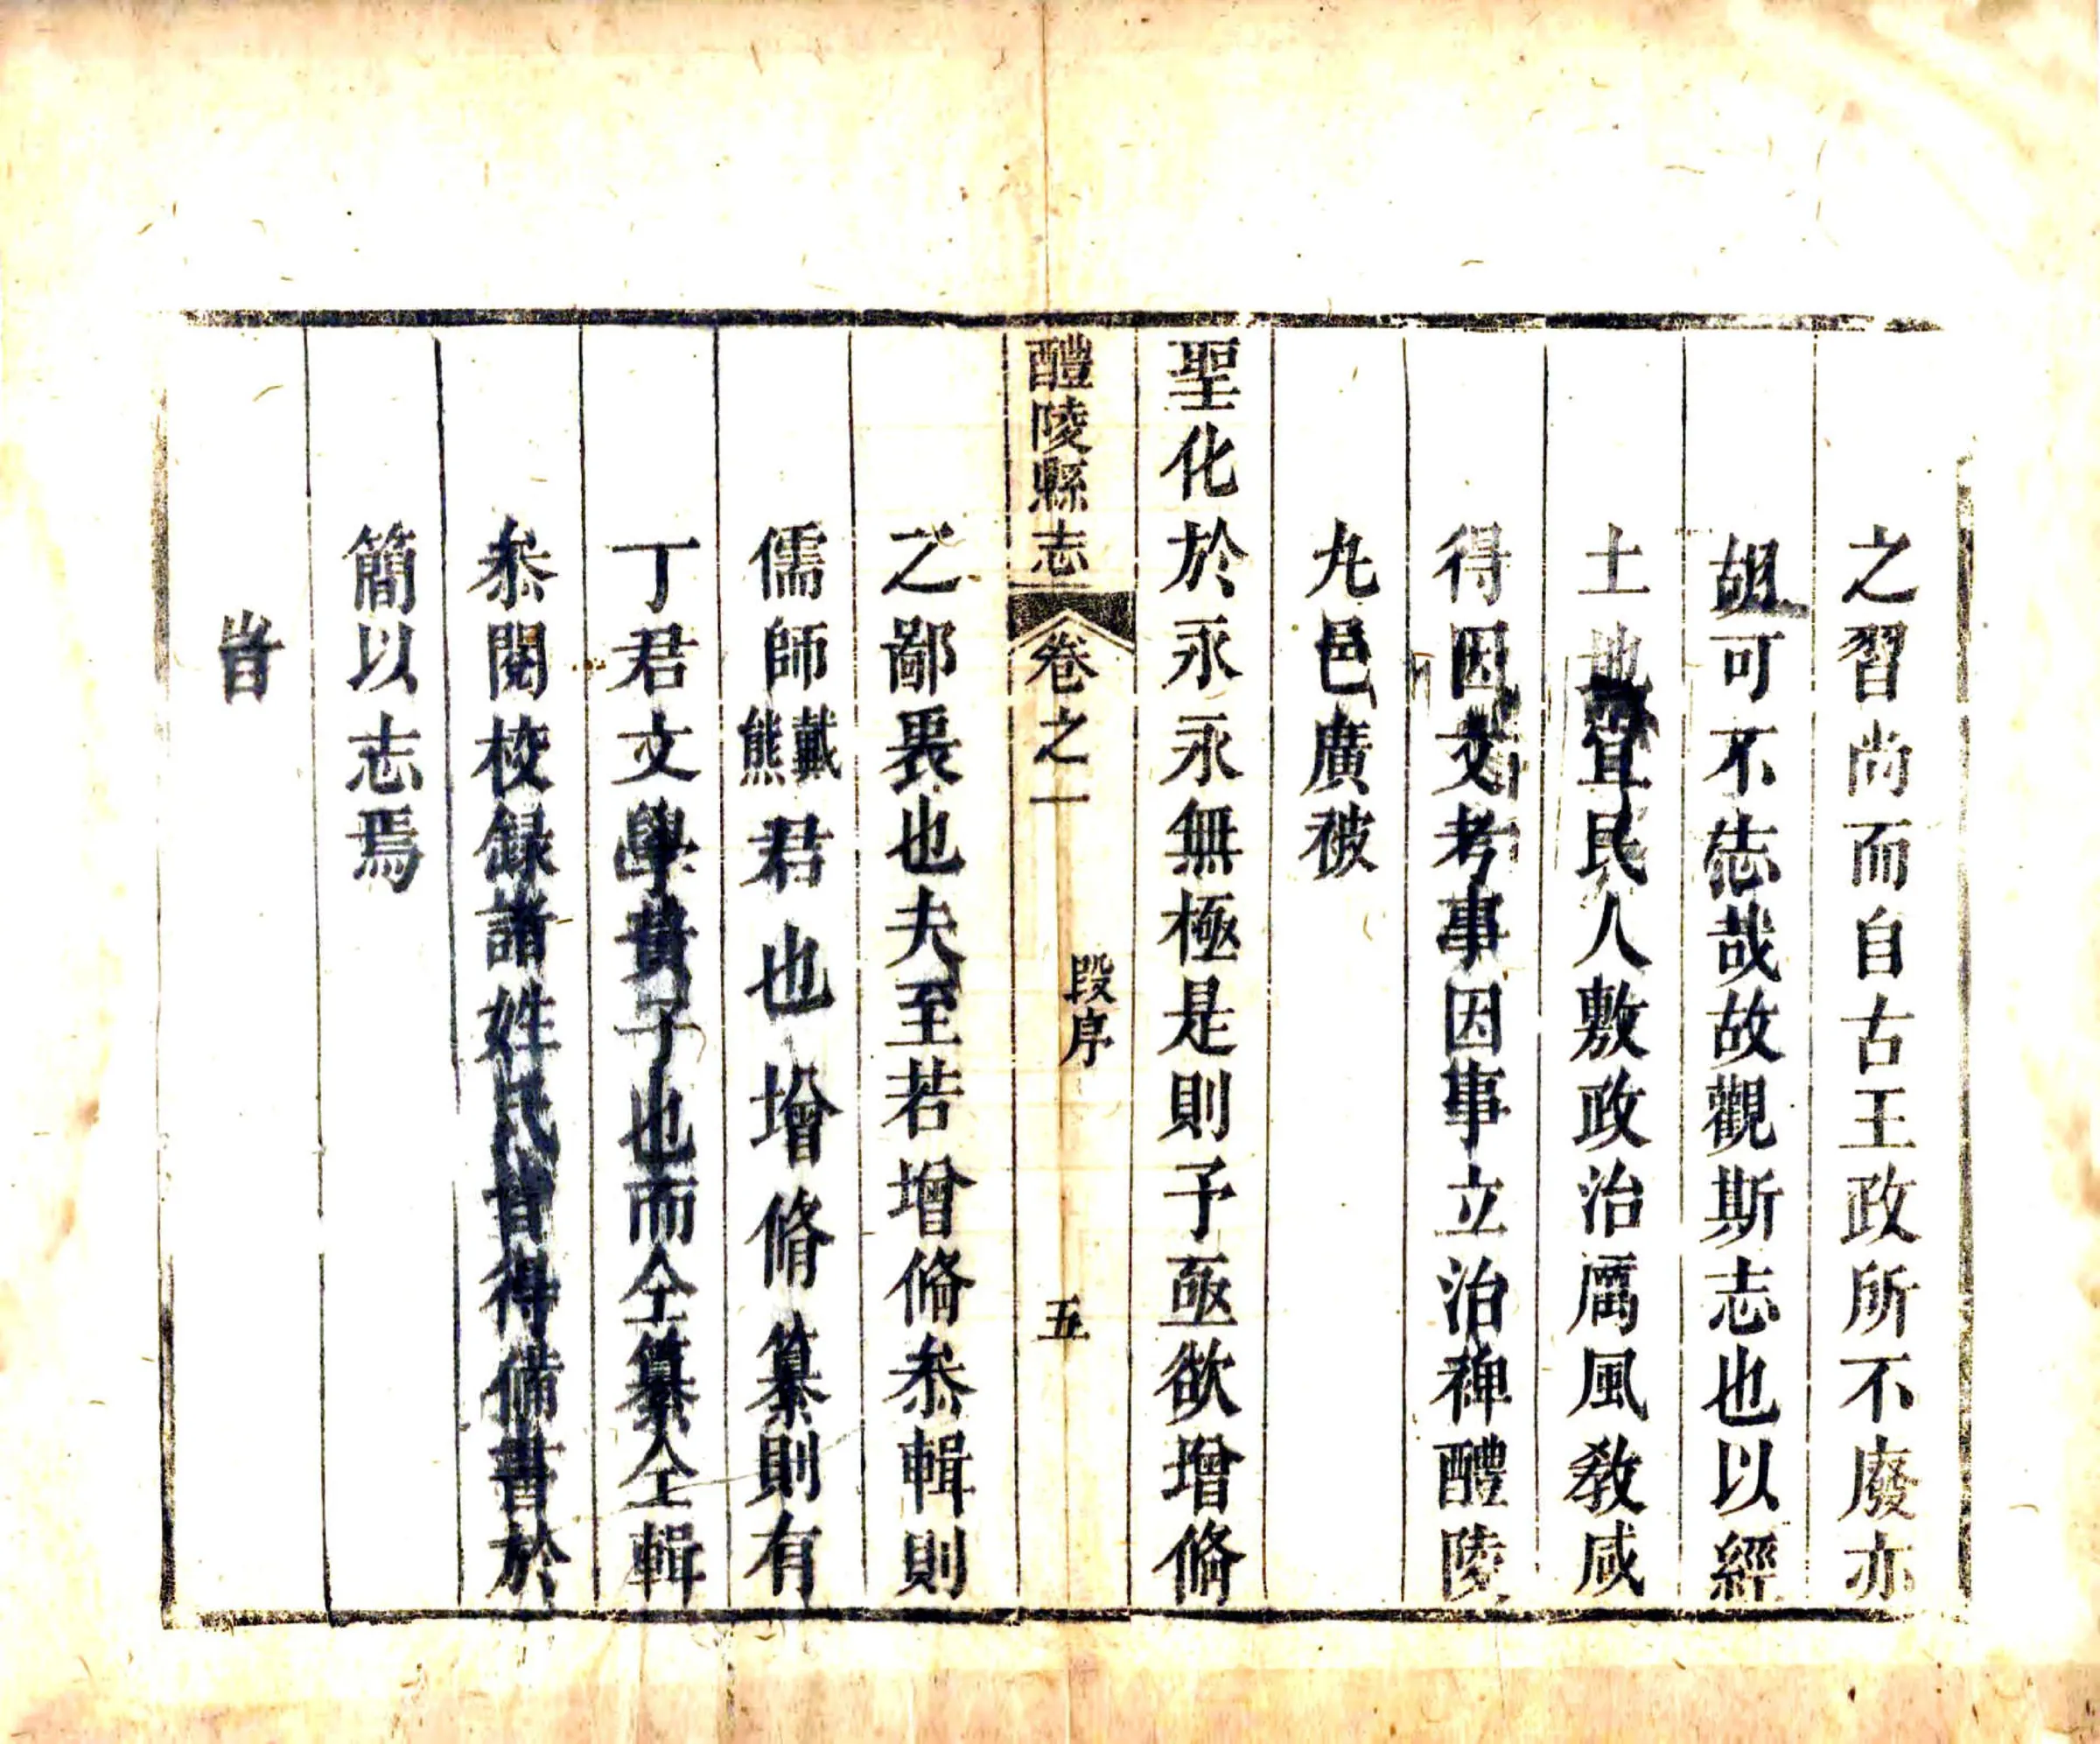 之習尚而自古王政所不廢亦
胡可不志哉故觀斯志也以經
土地宜民人敷政治厲風教咸
得因文考事因事立治禆醴陵
九邑廣被
聖化於永永無極是則予亟欲增脩
醴陵縣志 卷之一 段序 五
之鄙畏也夫至若增脩叅輯則
儒師戴熊君也增脩纂則有
丁君文學 子也而仝纂仝輯
叅閱校録諸姓氏皆得備書於
簡以志焉
旹